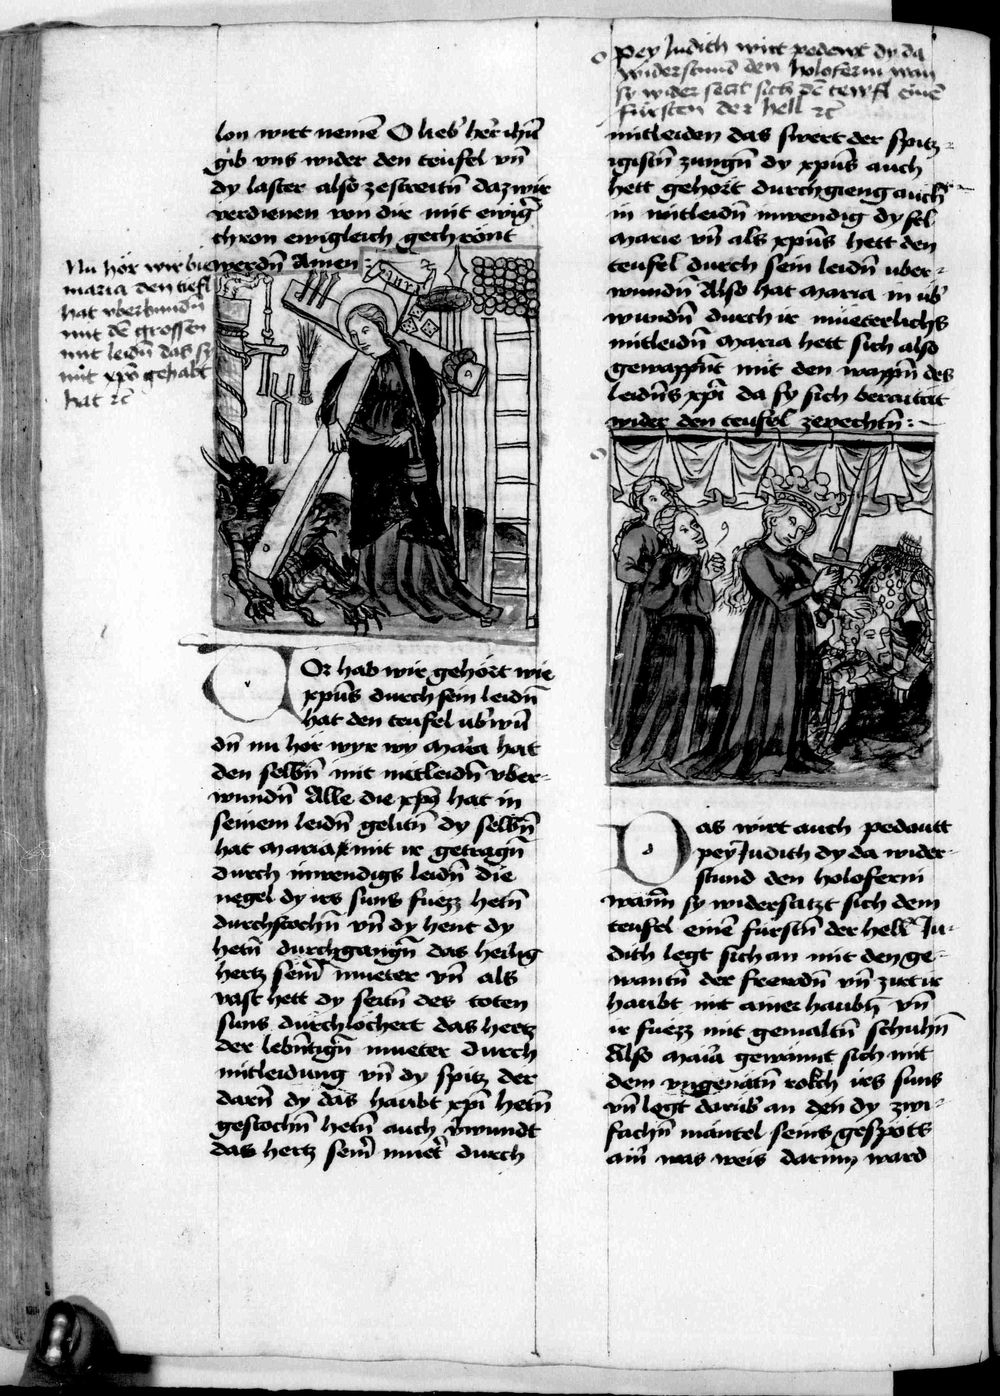 lon wirt nemē O lieb' he'r ihū
gib vns wider den teufel vn̄
dy laster also zestreitn̄ daz wir
verdienen von dir mit ewig'
thron ewigleich gechrönt
werdn̄ Amen
Nu hör wir wie
maria den tiefl
hat vberbundn̄
mit dē grossen
mit leidn̄ das sy
mit xpō gehabt
hat ⁊c
Or hab wir gehört wie
xpūs durch sein leidn̄
hat den teufel ūb' wū
dn̄ nu hör wyr wy Maria hat
den selbn̄ mit mitleidn̄ vber-
wundn̄ Alle die xp̄s hat in
seinem leidn̄ gelitn̄ dy selbn̄
hat Maria mit ir getragn̄
durch inwendigs leidn̄ Die
negel dy irs suns fuezz hetn̄
durchstochn̄ vn̄ dy hent dy
hetn̄ durchgangn̄ das heilig
hertz sein' mueter vn̄ als
vast hett dy seitn̄ des toten
suns durchlöchert das hertz
der lebn̄tign̄ mueter Durch
mitleidung vn̄ dy spitz der
darn̄ dy das haubt xp̄i hetn̄
gestochn̄ hetn̄ auch v'wundt
das hertz sein' muet' durch
Pey Judith wirt pedewt dy da
widerstund den holoferm wan
sy wider seczt sich dē tewfl einē
fürsten der hell ⁊c
mitleiden das swert der spitz-
igistn̄ zungn̄ dy xpūs auch
hett gehört durchgieng auch
in mitleidn̄ inwendig dy sel
Marie vn̄ als xpūs hett den
teufel durch sein leidn̄ uber-
wundn̄ Also hat Maria in ūb'
wundn̄ durch ir müeterlichs
mitleidn̄ Maria hett sich also
gewappn̄t mit den wappn̄ des
leidn̄s xp̄i da sy sich beraitat
wider den teufel zevechtn̄
as wirt auch pedautt
pey Judith dy da wider-
stund den holoferm
wann̄ sy widersatzt sich dem
teufel einē fürstn̄ der hell Ju-
dith legt sich an mit den ge-
wantn̄ der frewdn̄ vn̄ zirt ir
haubt mit ainer haubn̄ vn̄
ir fuezz mit gemaltn̄ schuhn̄
Also Maria gewannt sich mit
dem vngenatn̄ rokch irs suns
vn̄ legt darūb' an den dy zwi-
fachn̄ mäntel seins gespöts
ain' was weis darinn ward